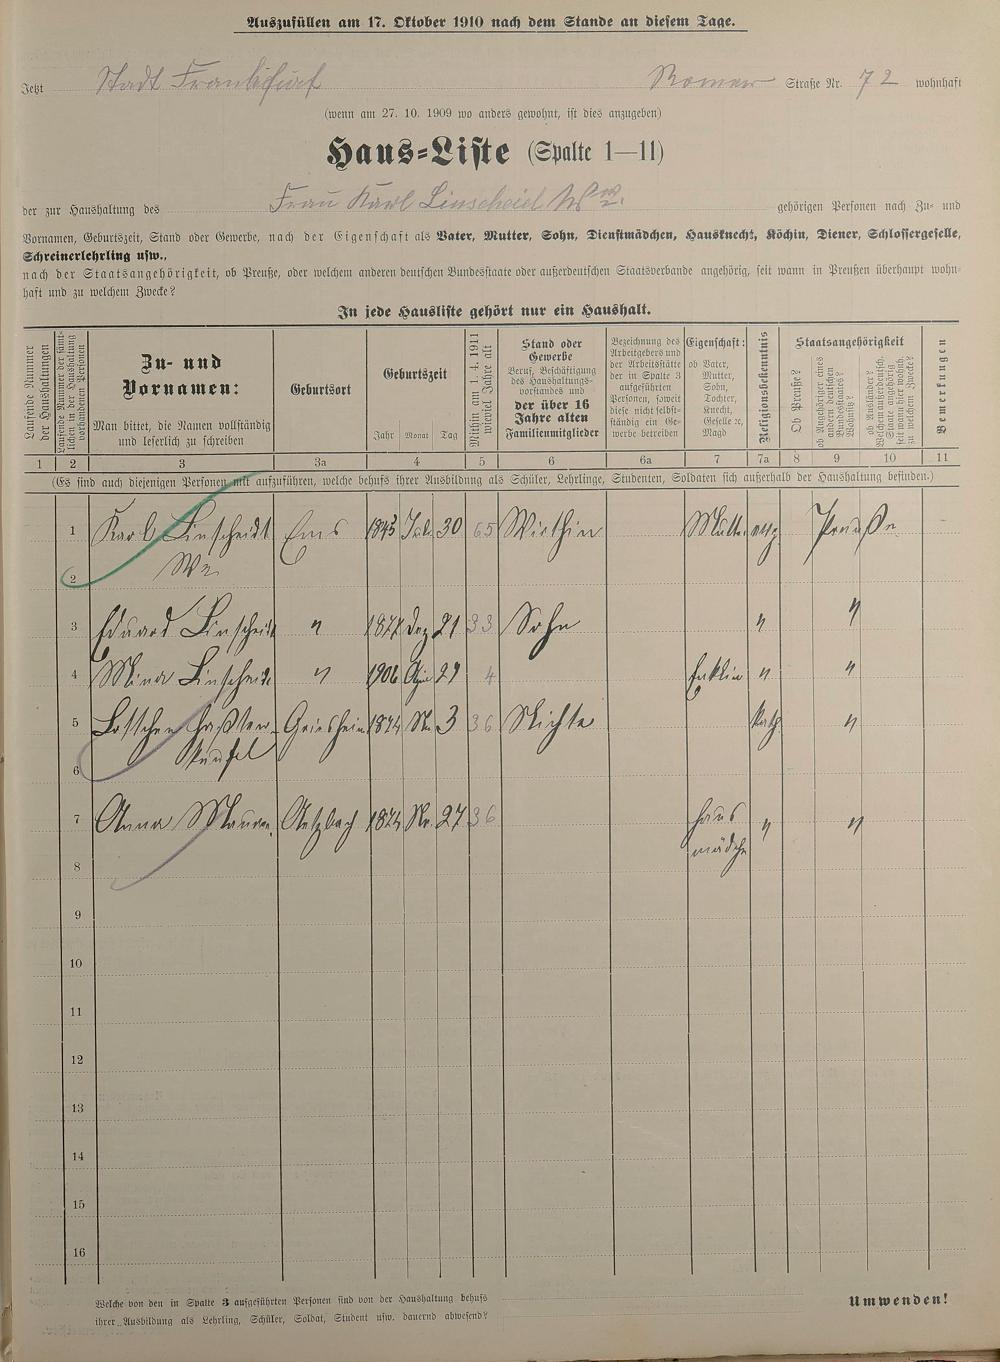 Auszufüllen am 17. Oktober 1910 nach dem Stande an diesem Tage.
Jetzt Stadt Frankfurt Römer Straße Nr. 72 wohnhaft
(wenn am 27. 10. 1909 wo anders gewohnt, ist dies anzugeben)
Haus-Liste (Spalte 1—11)
der zur Haushaltung des Frau Karl Linscheid Ww. gehörigen Personen nach Zu- und
Vornamen, Geburtszeit, Stand oder Gewerbe, nach der Eigenschaft als Vater, Mutter, Sohn, Dienstmädchen, Hausknecht, Köchin, Diener, Schlossergeselle,
Schreinerlehrling usw.,
nach der Staatsangehörigkeit, ob Preuße, oder welchem anderen deutschen Bundesstaate oder außerdeutschen Staatsverbande angehörig, seit wann in Preußen überhaupt wohn-
haft und zu welchem Zwecke?
In jede Hausliste gehört nur ein Haushalt.
Laufende Nummer der Haushaltungen
Laufende Nummer der sämtlichen in der Haushaltung vorhandenen Personen
Zu- und Vornamen:
Man bittet, die Namen vollständig und leserlich zu schreiben
Geburtsort
Geburtszeit
Jahr Monat Tag
Mithin am 1. 4. 1911 wieviel Jahre alt
Stand oder Gewerbe
Beruf, Beschäftigung des Haushaltungs-vorstandes und
der über 16 Jahre alten Familienmitglieder
Bezeichnung des Arbeitgebers und der Arbeitsstätte der in Spalte 3 aufgeführten Personen, soweit diese nicht selbst-ständig ein Ge-werbe betreiben
Eigenschaft:
ob Vater, Mutter, Sohn, Tochter, Knecht, Geselle ꝛc, Magd
Religionsbekenntnis
Staatsangehörigkeit
Ob Preuße?
ob Angehöriger eines andern deutschen Bundesstaates? Wohnsitz?
ob Ausländer? Welchem außerdeutsch. Staate angehörig seit wann hier wohnh. zu welchem Zwecke?
Bemerkungen
1 2 3 3a 4 5 6 6a 7 7a 8 9 10 11
(Es sind auch diejenigen Personen mit aufzuführen, welche behufs ihrer Ausbildung als Schüler, Lehrlinge, Studenten, Soldaten sich außerhalb der Haushaltung befinden.)
1 Karl Linscheidt Ems 30 65 Wirthin Mutter Preuße
2 We
3 Eduard Linscheidt " Dez 21 33 Sohn " "
4 Mina Linscheidt " 1906 4 Enklin " "
5 Lottchen Griesheim 1874 3 36 Nichte Kath "
6
7 Anna 1874 27 36 Haus " "
mädchen
8
9
10
11
12
13
14
15
16
Welche von den in Spalte 3 aufgeführten Personen sind von der Haushaltung behufs
ihrer Ausbildung als Lehrling, Schüler, Soldat, Student usw. dauernd abwesend?
Umwenden!